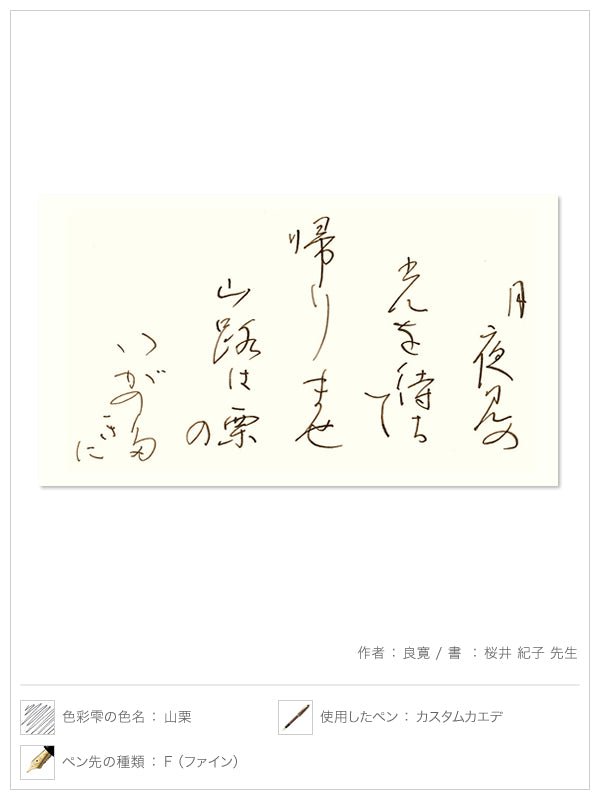 月夜見の
光を待ちて
帰りませ
山路は栗の
いがの多きに
作者：良寛 / 書 ：桜井 紀子 先生
色彩雫の色名：山栗
使用したペン：カスタムカエデ
ペン先の種類：F（ファイン）